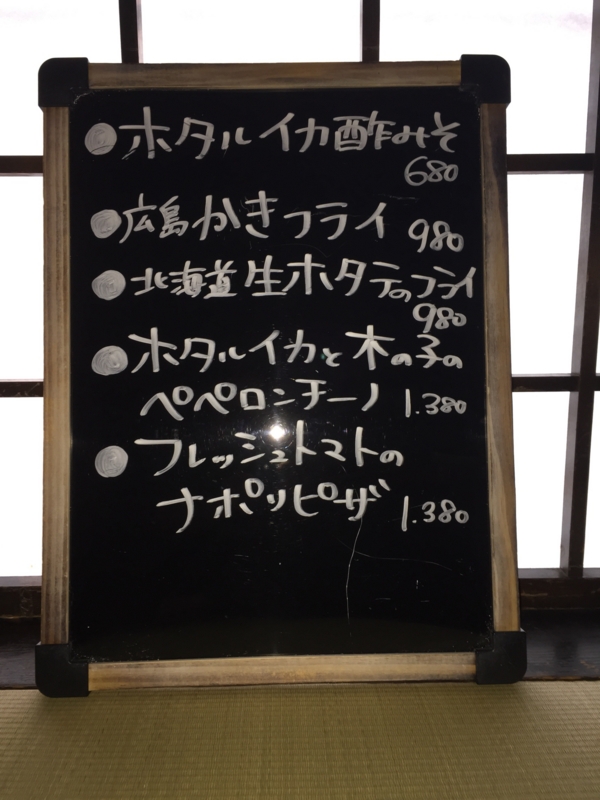 ●ホタルイカ酢みそ
680
●広島かきフライ 980
●北海道生ホタテのフライ
980
●ホタルイカと木の子の
ペペロンチーノ 1.380
●フレッシュトマトの
ナポリピザ 1.380